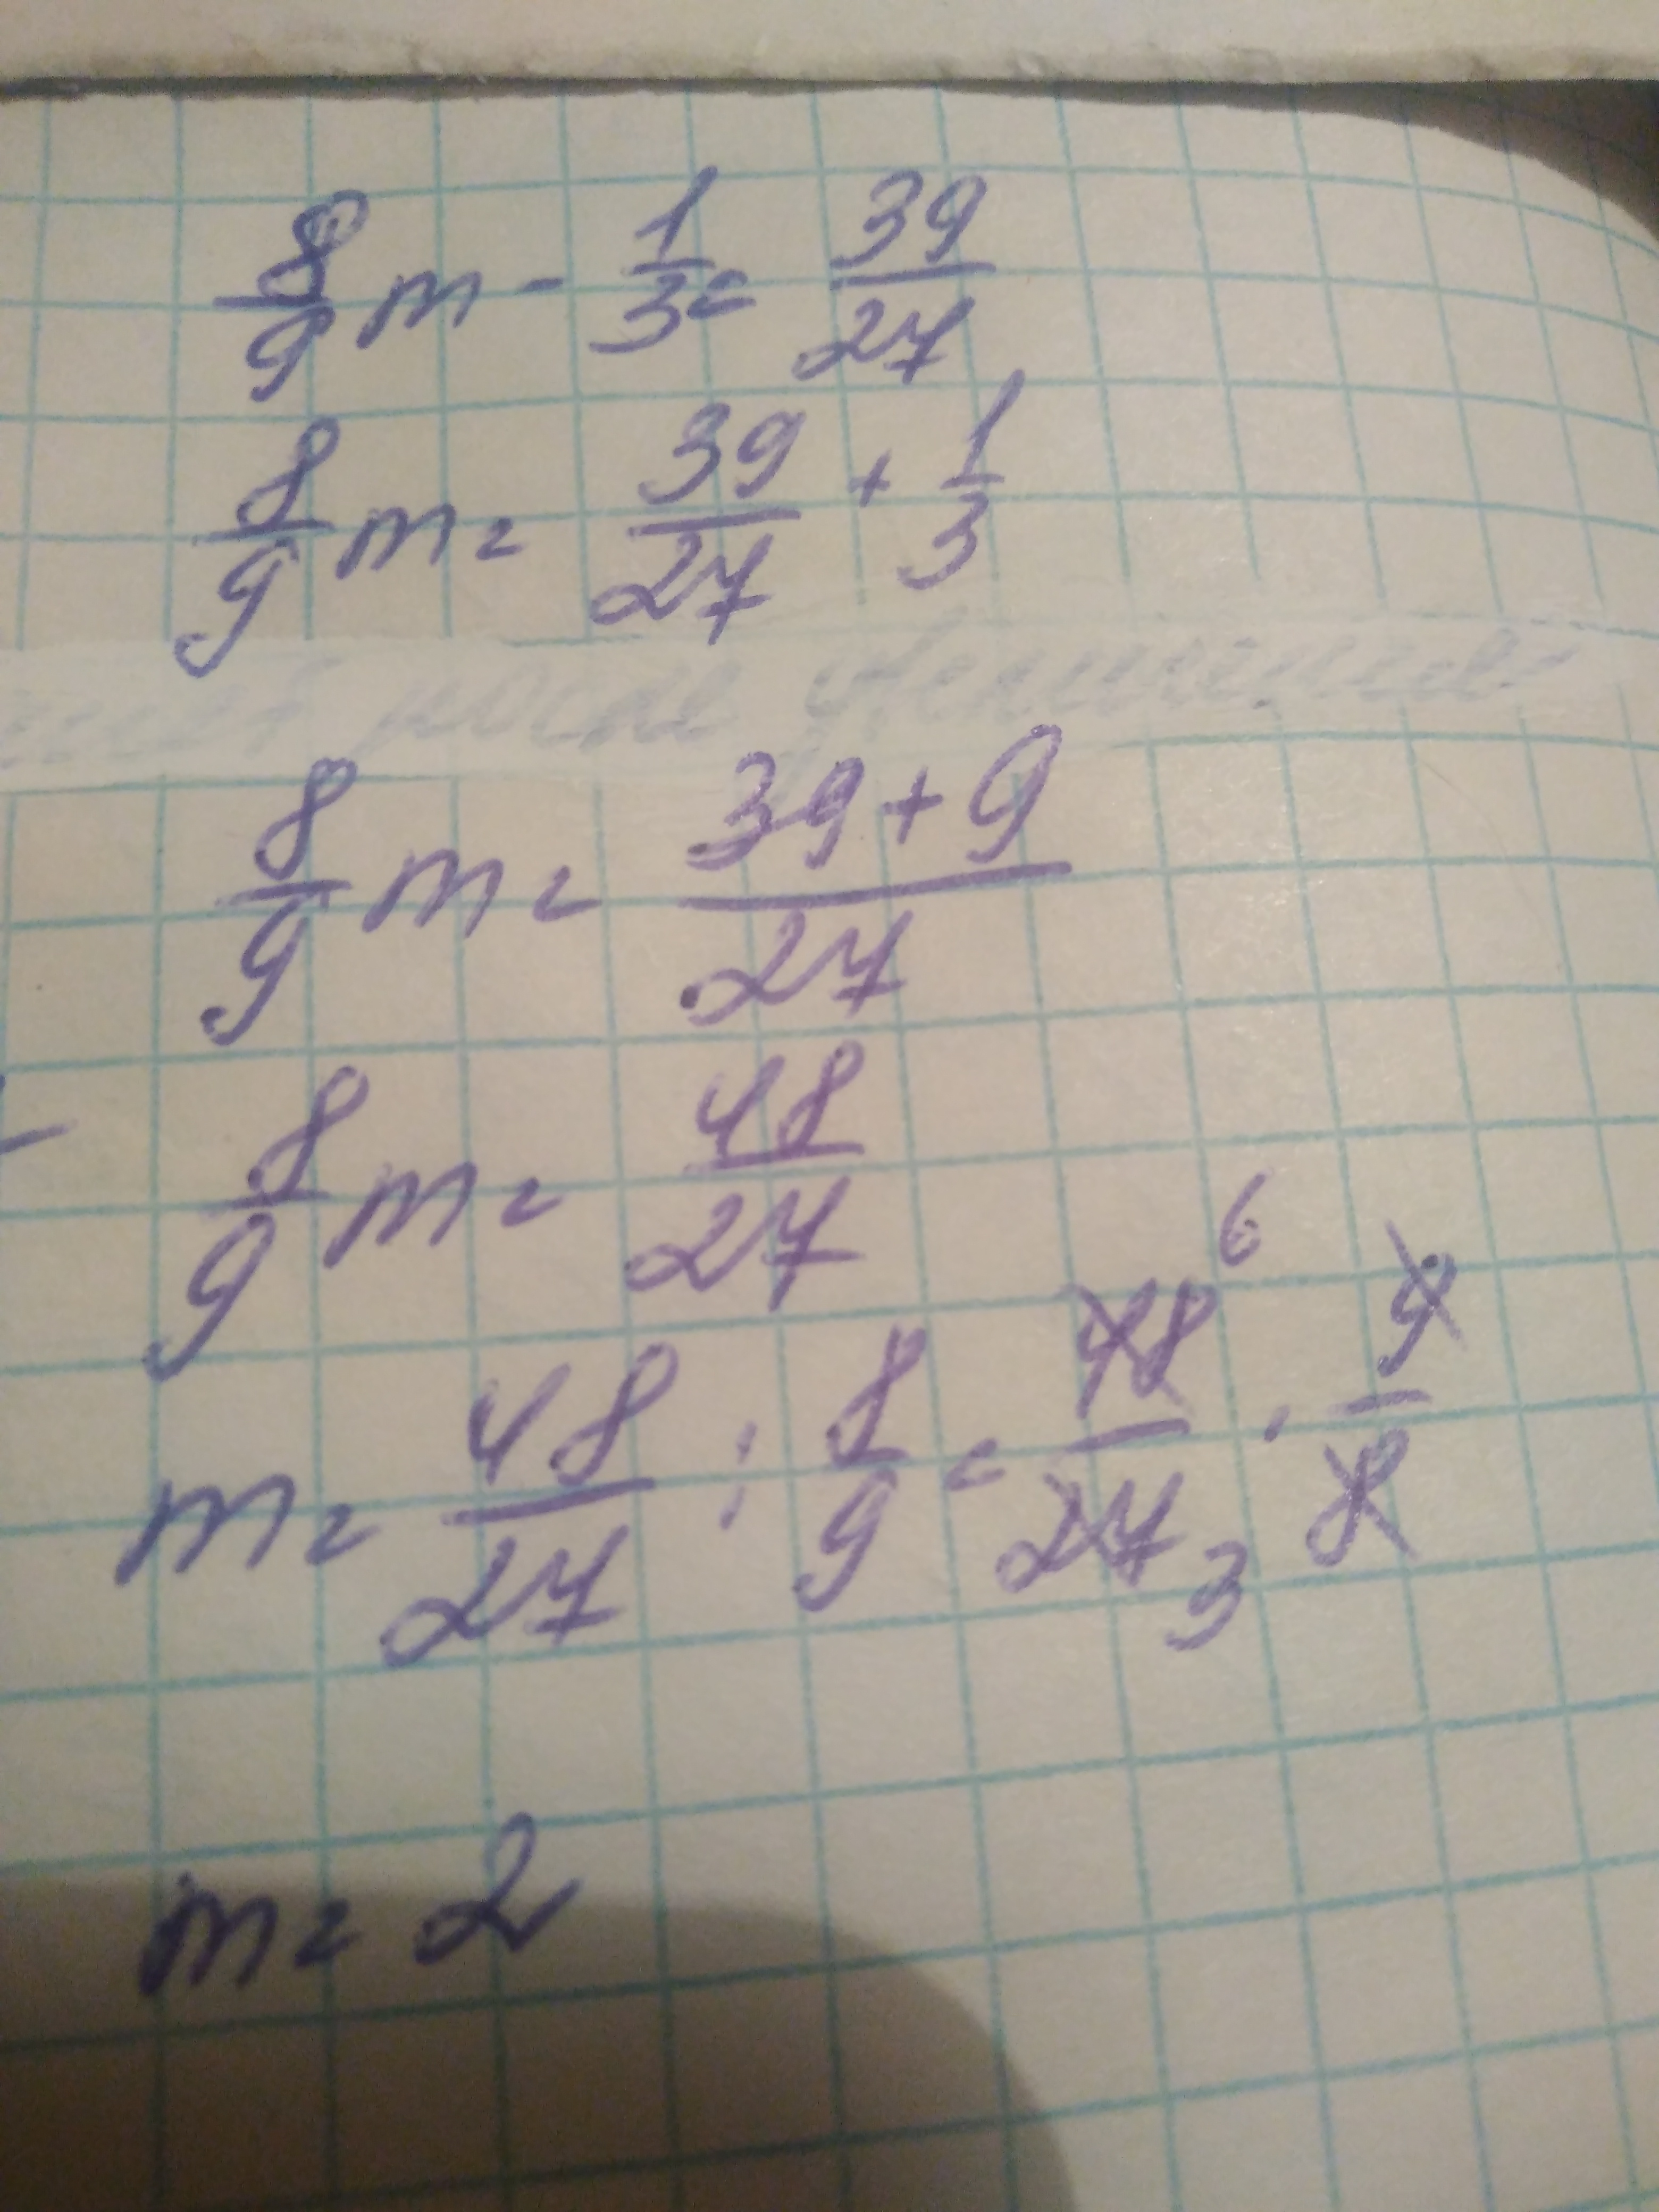 8/9 m - 1/3 = 39/27
8/9 m = 39/27 + 1/3
после
8/9 m = (39+9)/27
8/9 m = 48/27
m = 48/27 : 8/9 = 48 6/27 3 · 9/8
m = 2